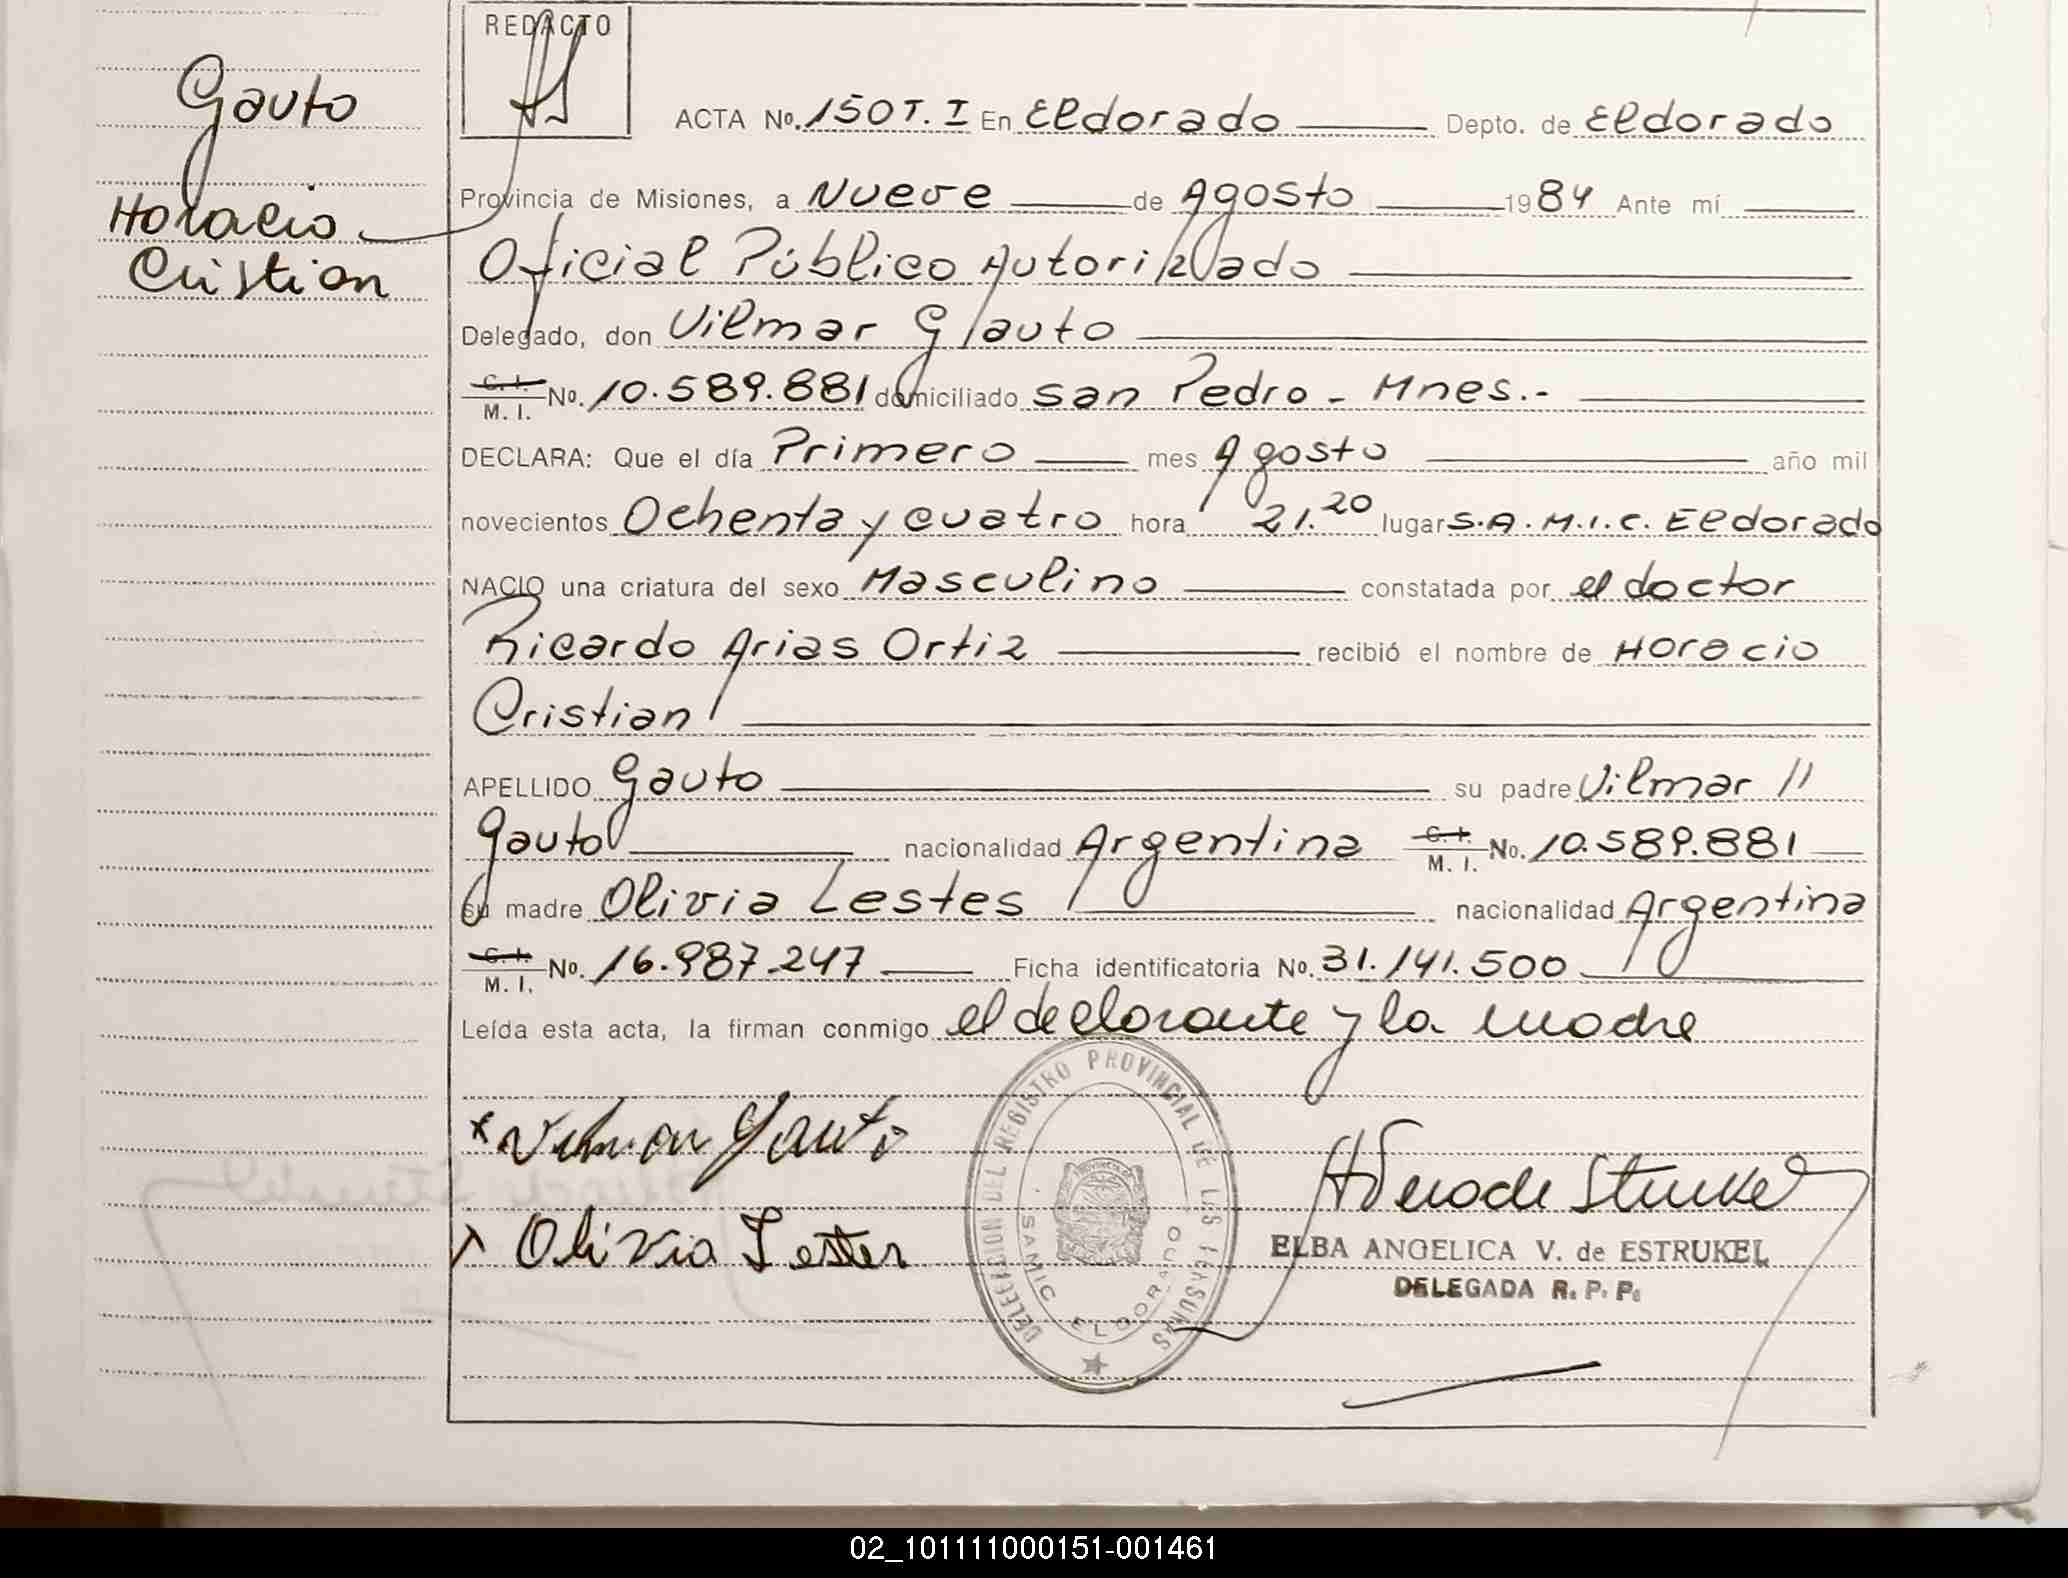 Gauto
Horacio
Cristian
REDACTO
ACTA No. 150 T. I En Eldorado Depto. de Eldorado
Provincia de Misiones, a Nueve de Agosto 1984 Ante mí
Oficial Público Autorizado
Delegado, don Vilmar Gauto
C. I. M. I. No. 10.589.881 domiciliado San Pedro - Mnes.-
DECLARA: Que el día Primero mes Agosto año mil
novecientos Ochenta y cuatro hora 21.20 lugar S.A.M.I.C. Eldorado
NACIO una criatura del sexo Masculino constatada por el doctor
Ricardo Arias Ortiz recibió el nombre de Horacio
Cristian
APELLIDO Gauto su padre Vilmar
Gauto nacionalidad Argentina C. I. M. I. No. 10.589.881
su madre Olivia Lestes nacionalidad Argentina
C. I. M. I. No. 16.987.247 Ficha identificatoria No. 31.141.500
Leída esta acta, la firman conmigo el declarante y la madre
Vilmar Gauto
Olivia Lester
DELEGACION DEL REGISTRO PROVINCIAL DE LAS PERSONAS
SAMIC ELDORADO
ELBA ANGELICA V. de ESTRUKEL
DELEGADA R. P. P.
02_101111000151-001461